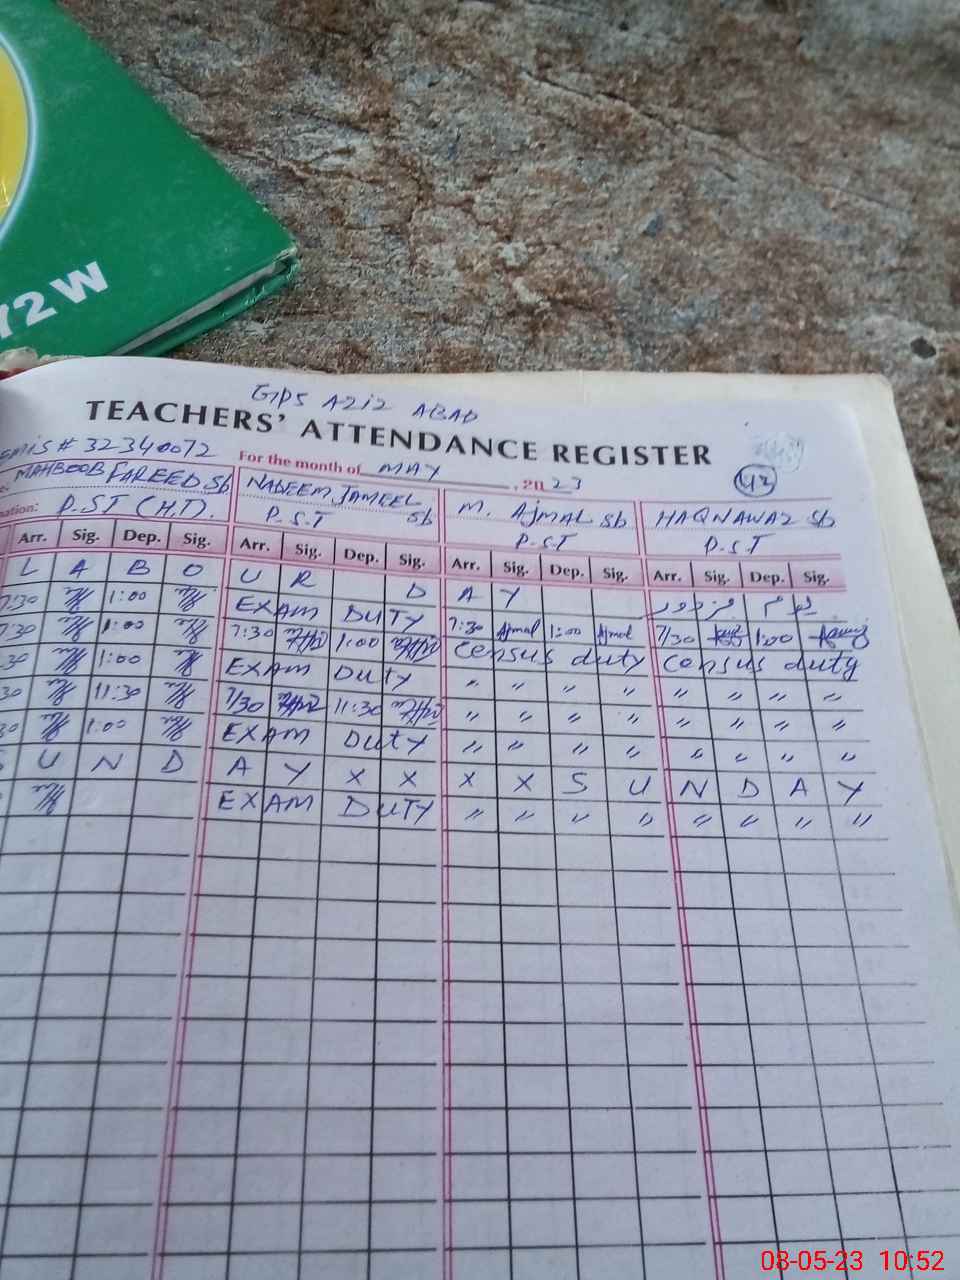 72 W
GPS AZIZ ABAD
TEACHERS' ATTENDANCE REGISTER
EMIS # 32340072
For the month of MAY, 2023
42
MAHBOOB FAREED Sb NADEEM JAMEEL Sb M. AJMAL Sb HAQNAWAZ Sb
nation: P.ST (H.T). P.S.T P.S.T P.S.T
Arr. Sig. Dep. Sig. Arr. Sig. Dep. Sig. Arr. Sig. Dep. Sig. Arr. Sig. Dep. Sig.
L A B O U R D A Y یوم مزدور
7:30 1:00 EXAM DUTY 7:30 Ajmal 1:00 Ajmal 7/30 1:00
7:30 1:00 7:30 1:00 Census duty Census duty
:30 1:00 EXAM DUTY " " " " " " " "
30 11:30 7/30 11:30 " " " " " " " "
30 1:00 EXAM DUTY " " " " " " " "
S U N D A Y X X X X S U N D A Y
EXAM DUTY " " " " " " " "
08-05-23 10:52